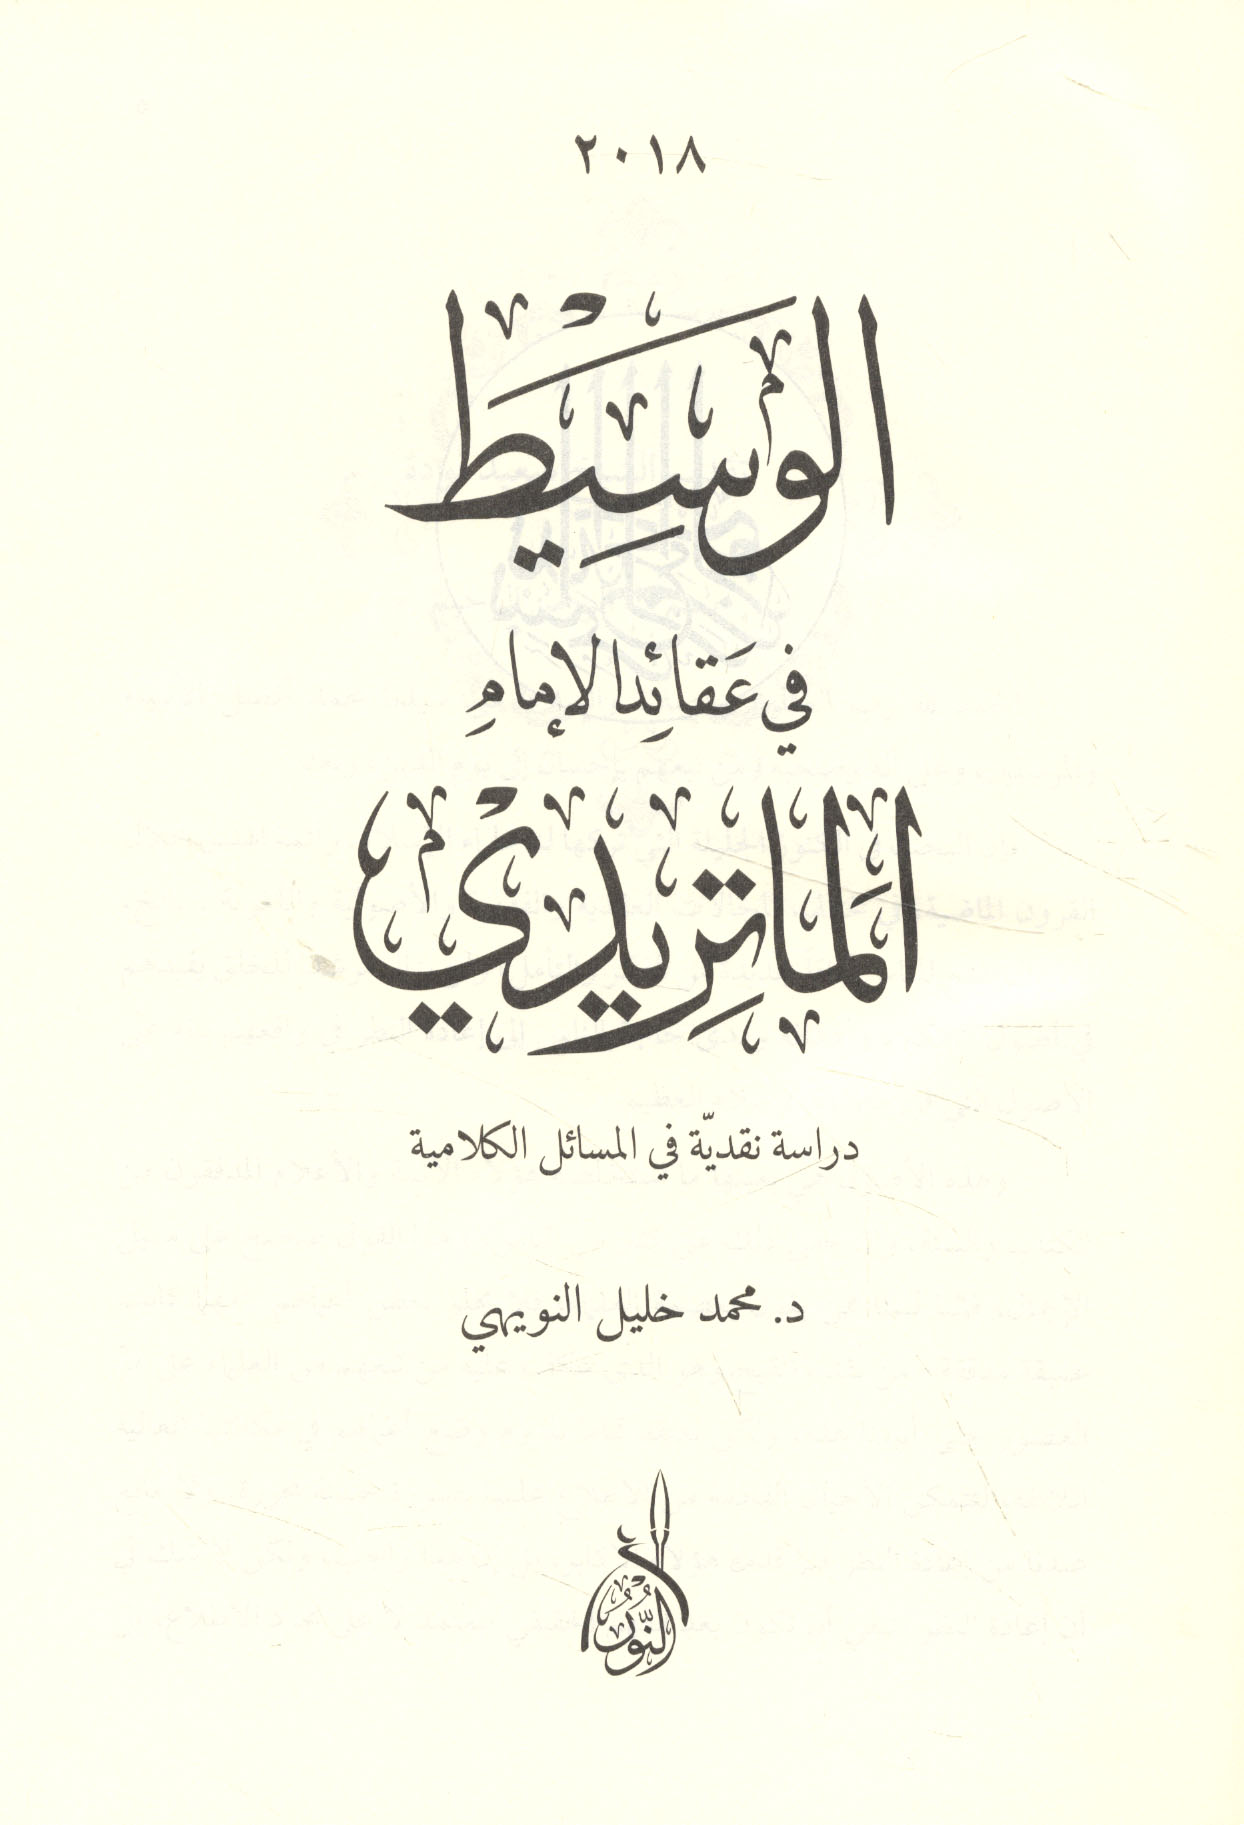 ٢٠١٨
الوَسِيَطْ
في عَقائِد الإمامِ
المَاتِريدي
دراسة نقديّة في المسائل الكلامية
د. محمد خليل النويهي
النُّور